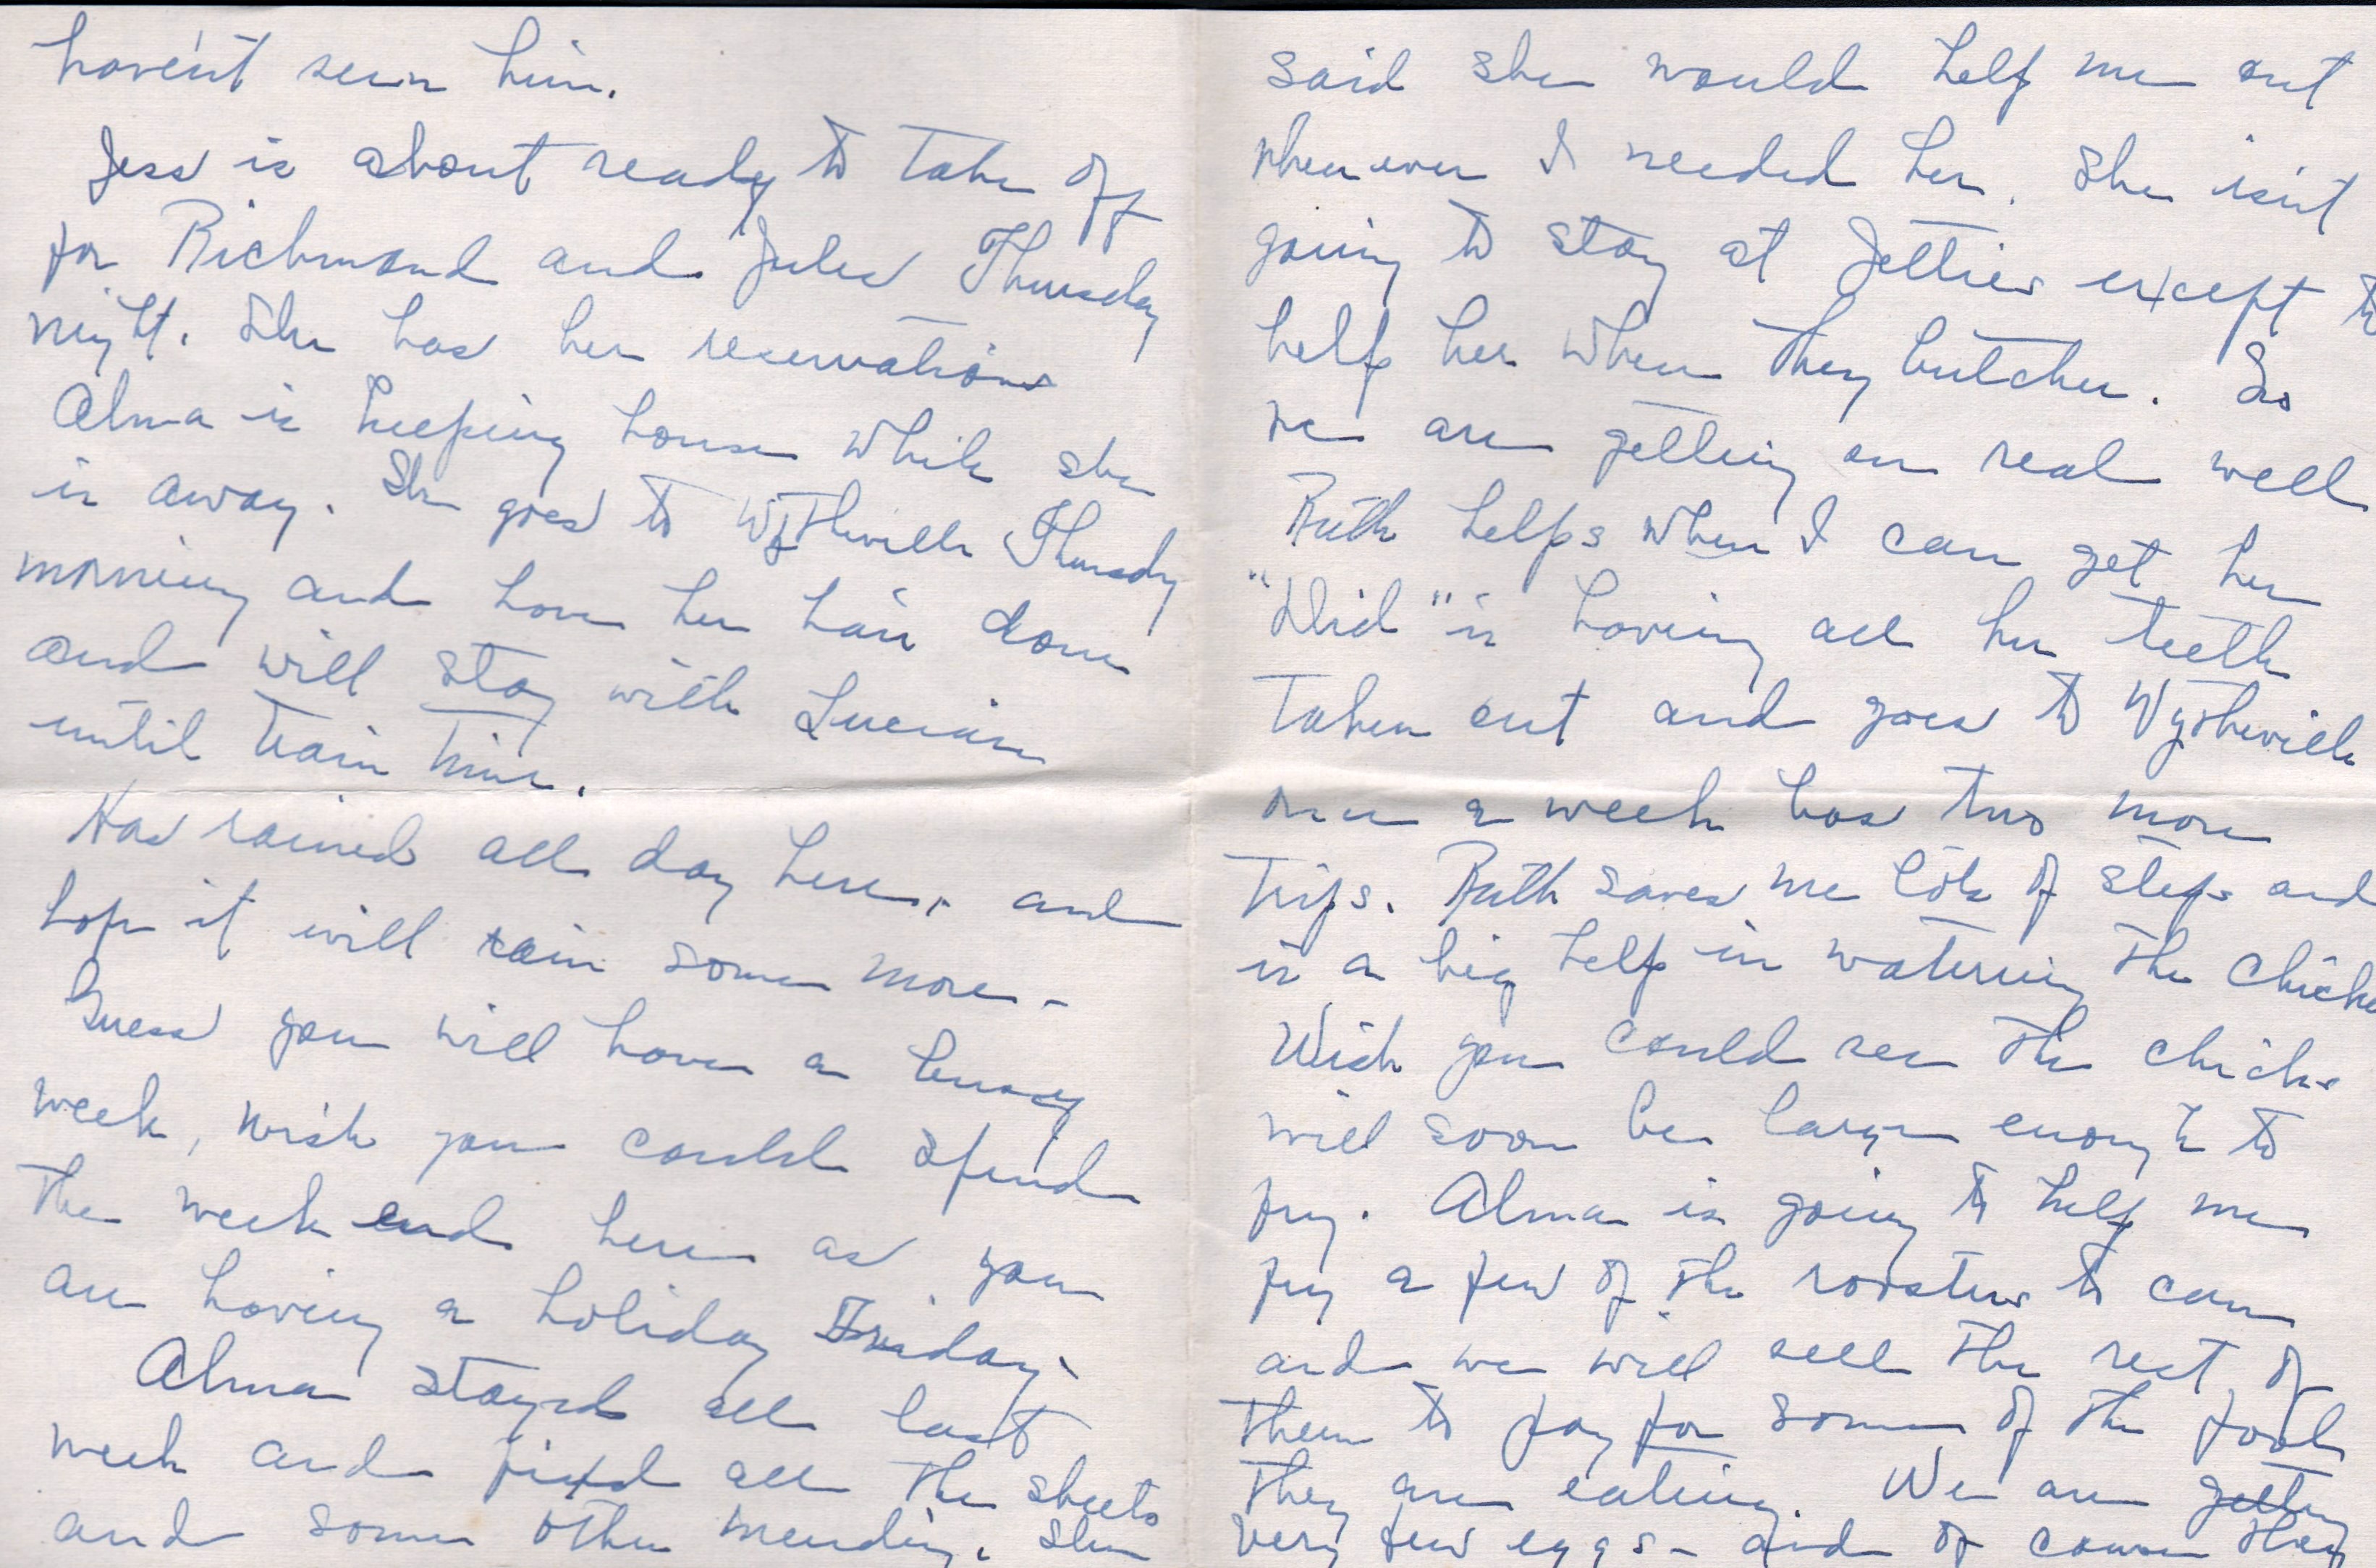 haven't seen him.
Jess is about ready to take off
for Richmond and Jules Thursday
night. She has her reservations
Alma is keeping house while she
is away. She goes to Wytheville Thursdy
morning and have her hair done
and will stay with Lucian
until train time.
Has rained all day here, and
hope it will rain some more -
Guess you will have a busy
week, wish you could spend
the week end here as you
are having a holiday Friday.
Alma stayed all last
week and fixed all the sheets
and some other mending. She
said she would help me out
when ever I needed her. She isn't
going to stay at Jetties except to
help her when they butcher. So
we are getting on real well
Ruth helps when I can get her
"Did" is having all her teeth
taken out and goes to Wytheville
once a week has two more
trips. Ruth saves me lots of steps and
is a big help in watering the chicks
Wish you could see the chicks
will soon be large enough to
fry. Alma is going to help me
fry a few of the roosters to can
and we will sell the rest of
them to pay for some of the food
they are eating. We are getting
very few eggs - and of course they